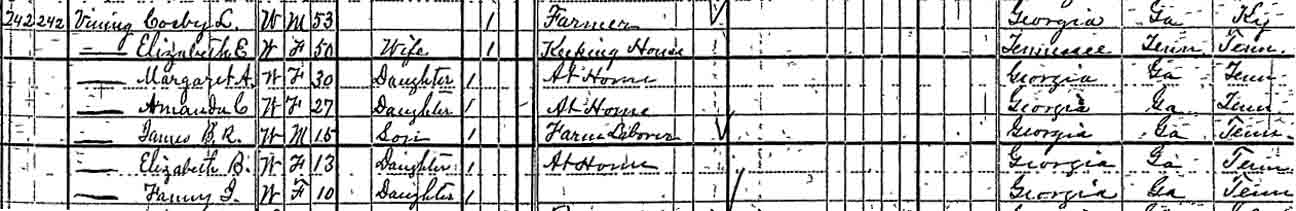 242 242 Vining Cosby L. W M 53 1 Farmer Georgia Ga Ky
— Elizabeth E W F 50 Wife 1 Keeping House Tennessee Tenn Tenn.
— Margaret A. W F 30 Daughter 1 At Home Georgia Ga Tenn
— Amanda C W F 27 Daughter 1 At Home Georgia Ga Tenn
— James B. R. W M 15 Son 1 Farm Laborer Georgia Ga Tenn.
— Elizabeth B. W F 13 Daughter 1 At Home Georgia Ga Tenn
— Fanny I. W F 10 Daughter 1 Georgia Ga Tenn